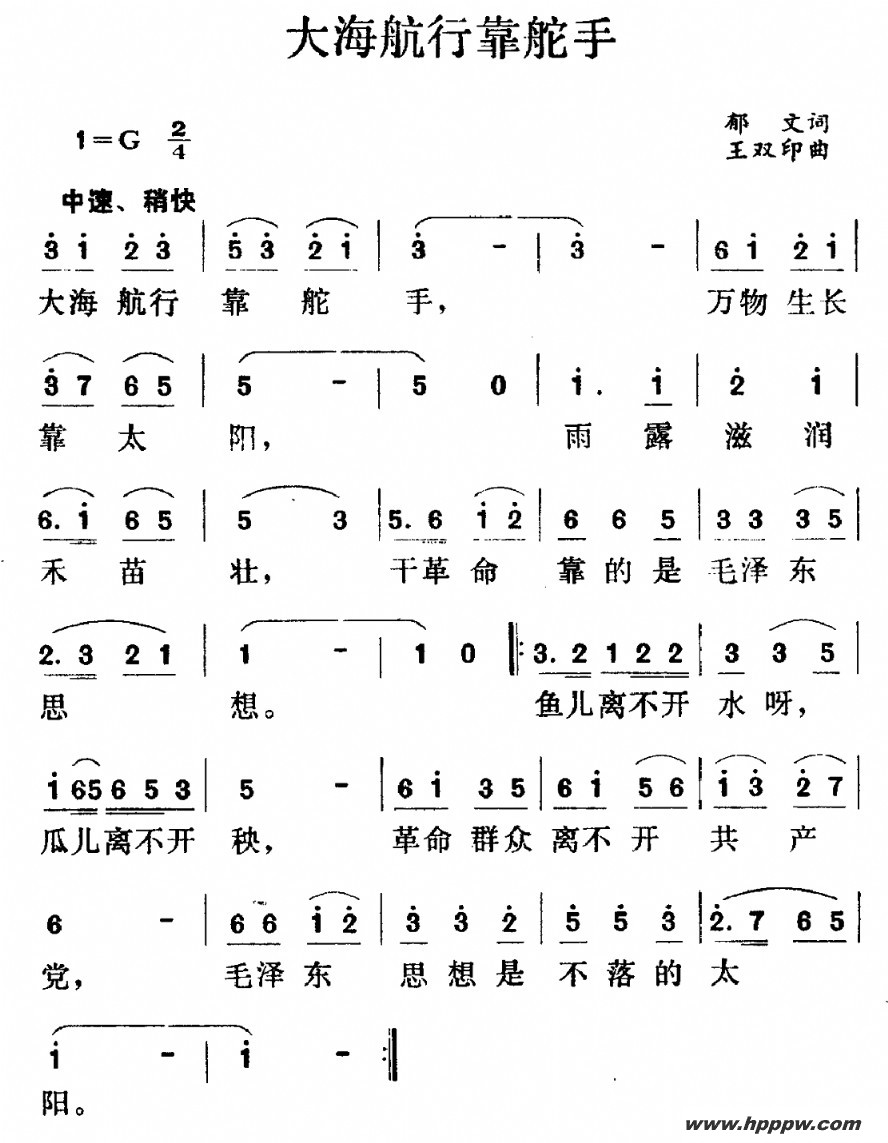 大海航行靠舵手
1=G 2/4
郁 文词
王双印曲
中速、稍快
3̇ 1̇ 2̇ 3̇ | 5̇ 3̇ 2̇ 1̇ | 3̇ - | 3̇ - | 6 1̇ 2̇ 1̇ |
大海 航行 靠 舵 手， 万物 生长
3̇ 7 6 5 | 5 - | 5 0 | 1̇ . 1̇ | 2̇ 1̇ |
靠 太 阳， 雨 露 滋 润
6. 1̇ 6 5 | 5 3 | 5. 6 1̇ 2̇ | 6 6 5 | 3 3 3 5 |
禾 苗 壮， 干革 命 靠 的 是 毛泽 东
2. 3 2 1 | 1 - | 1 0 |: 3. 2 1 2 2 | 3 3 5 |
思 想。 鱼儿离不开 水 呀，
1̇ 65 6 5 3 | 5 - | 6 1̇ 3 5 | 6 1̇ 5 6 | 1̇ 3̇ 2̇ 7 |
瓜儿离不开 秧， 革命 群众 离不 开 共 产
6 - | 6 6 1̇ 2̇ | 3̇ 3̇ 2̇ | 5̇ 5̇ 3̇ | 2̇. 7 6 5 |
党， 毛泽 东 思 想 是 不 落 的 太
1̇ - | 1̇ - :|
阳。
www.hpppw.com